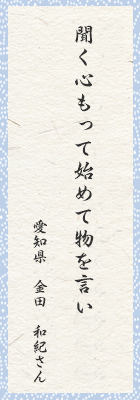 聞く心もって始めて物を言い
愛知県　金田　和紀さん